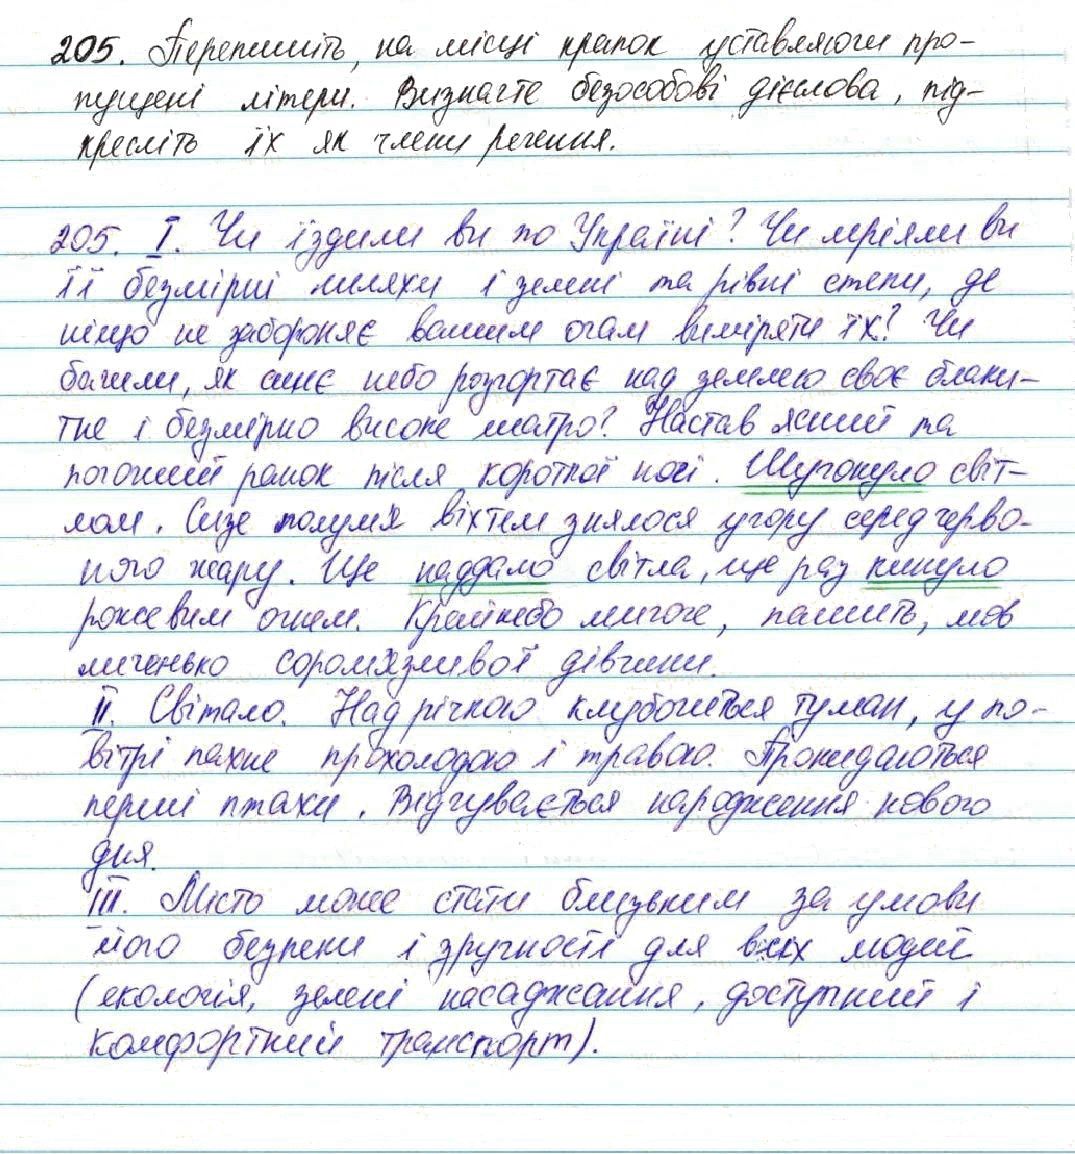 205. Перепишіть, на місці крапок уставляючи про-
пущені літери. Визначте безособові дієслова, під-
кресліть їх як члени речення.
205. I. Чи їздили ви по Україні? Чи міряли ви
її безмірні шляхи і зелені та рівні степи, де
ніщо не забороняє вашим очам виміряти їх? Чи
бачили, як синє небо розгортає над землею своє блаки-
тне і безмірно високе шатро? Настав ясний та
погожий ранок після короткої ночі. Шугонуло світ-
лом. Сизе полумя віхтем знялося угору серед черво-
ного жару. Ще наддало світла, ще раз кинуло
рожевим огнем. Крайнебо миготе, пашить, мов
личенько сором'язливої дівчини.
II. Світало. Над річкою клубочиться туман, у по-
вітрі пахне прохолодою і травою. Прокидаються
перші птахи. Відчувається народження нового
дня.
III. Місто може стати близьким за умови
його безпеки і зручності для всіх людей
(екологія, зелені насадження, доступний і
комфортний транспорт).